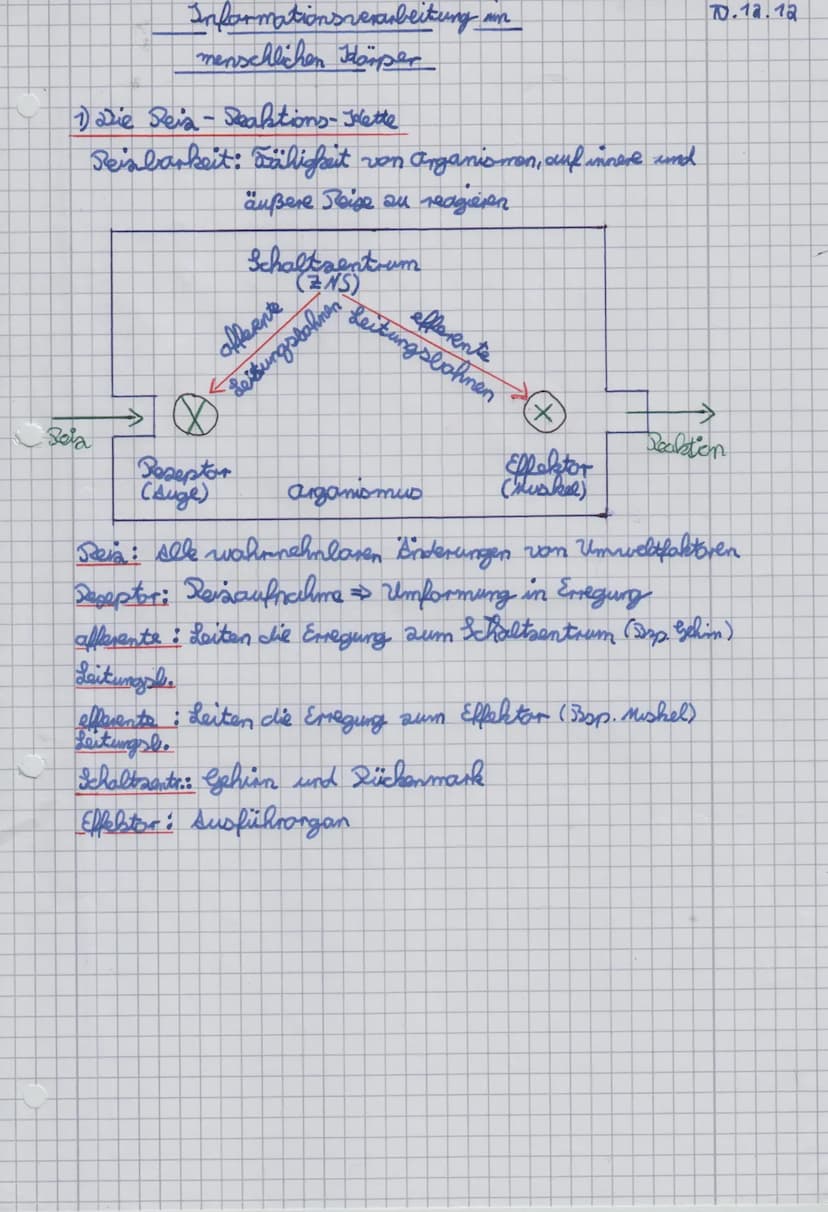 Informationsverarbeitung im
10.12.12
menschlichen Körper
1) Die Reiz-Reaktions-Kette
Reizbarkeit: Fähigkeit von Organismen, auf innere und
äußere Reize zu reagieren
Schaltzentrum
(ZNS)
afferente
Leitungsbahnen
efferente
Leitungsbahnen
Reiz
Reaktion
Rezeptor
(Auge)
Organismus
Effektor
(Muskel)
Reiz: Alle wahrnehmbaren Änderungen von Umweltfaktoren
Rezeptor: Reizaufnahme => Umformung in Erregung
afferente : Leiten die Erregung zum Schaltzentrum (Bsp. Gehirn)
Leitungsb.
efferente : Leiten die Erregung zum Effektor (Bsp. Muskel)
Leitungsb.
Schaltzentr.: Gehirn und Rückenmark
Effektor: Ausführorgan